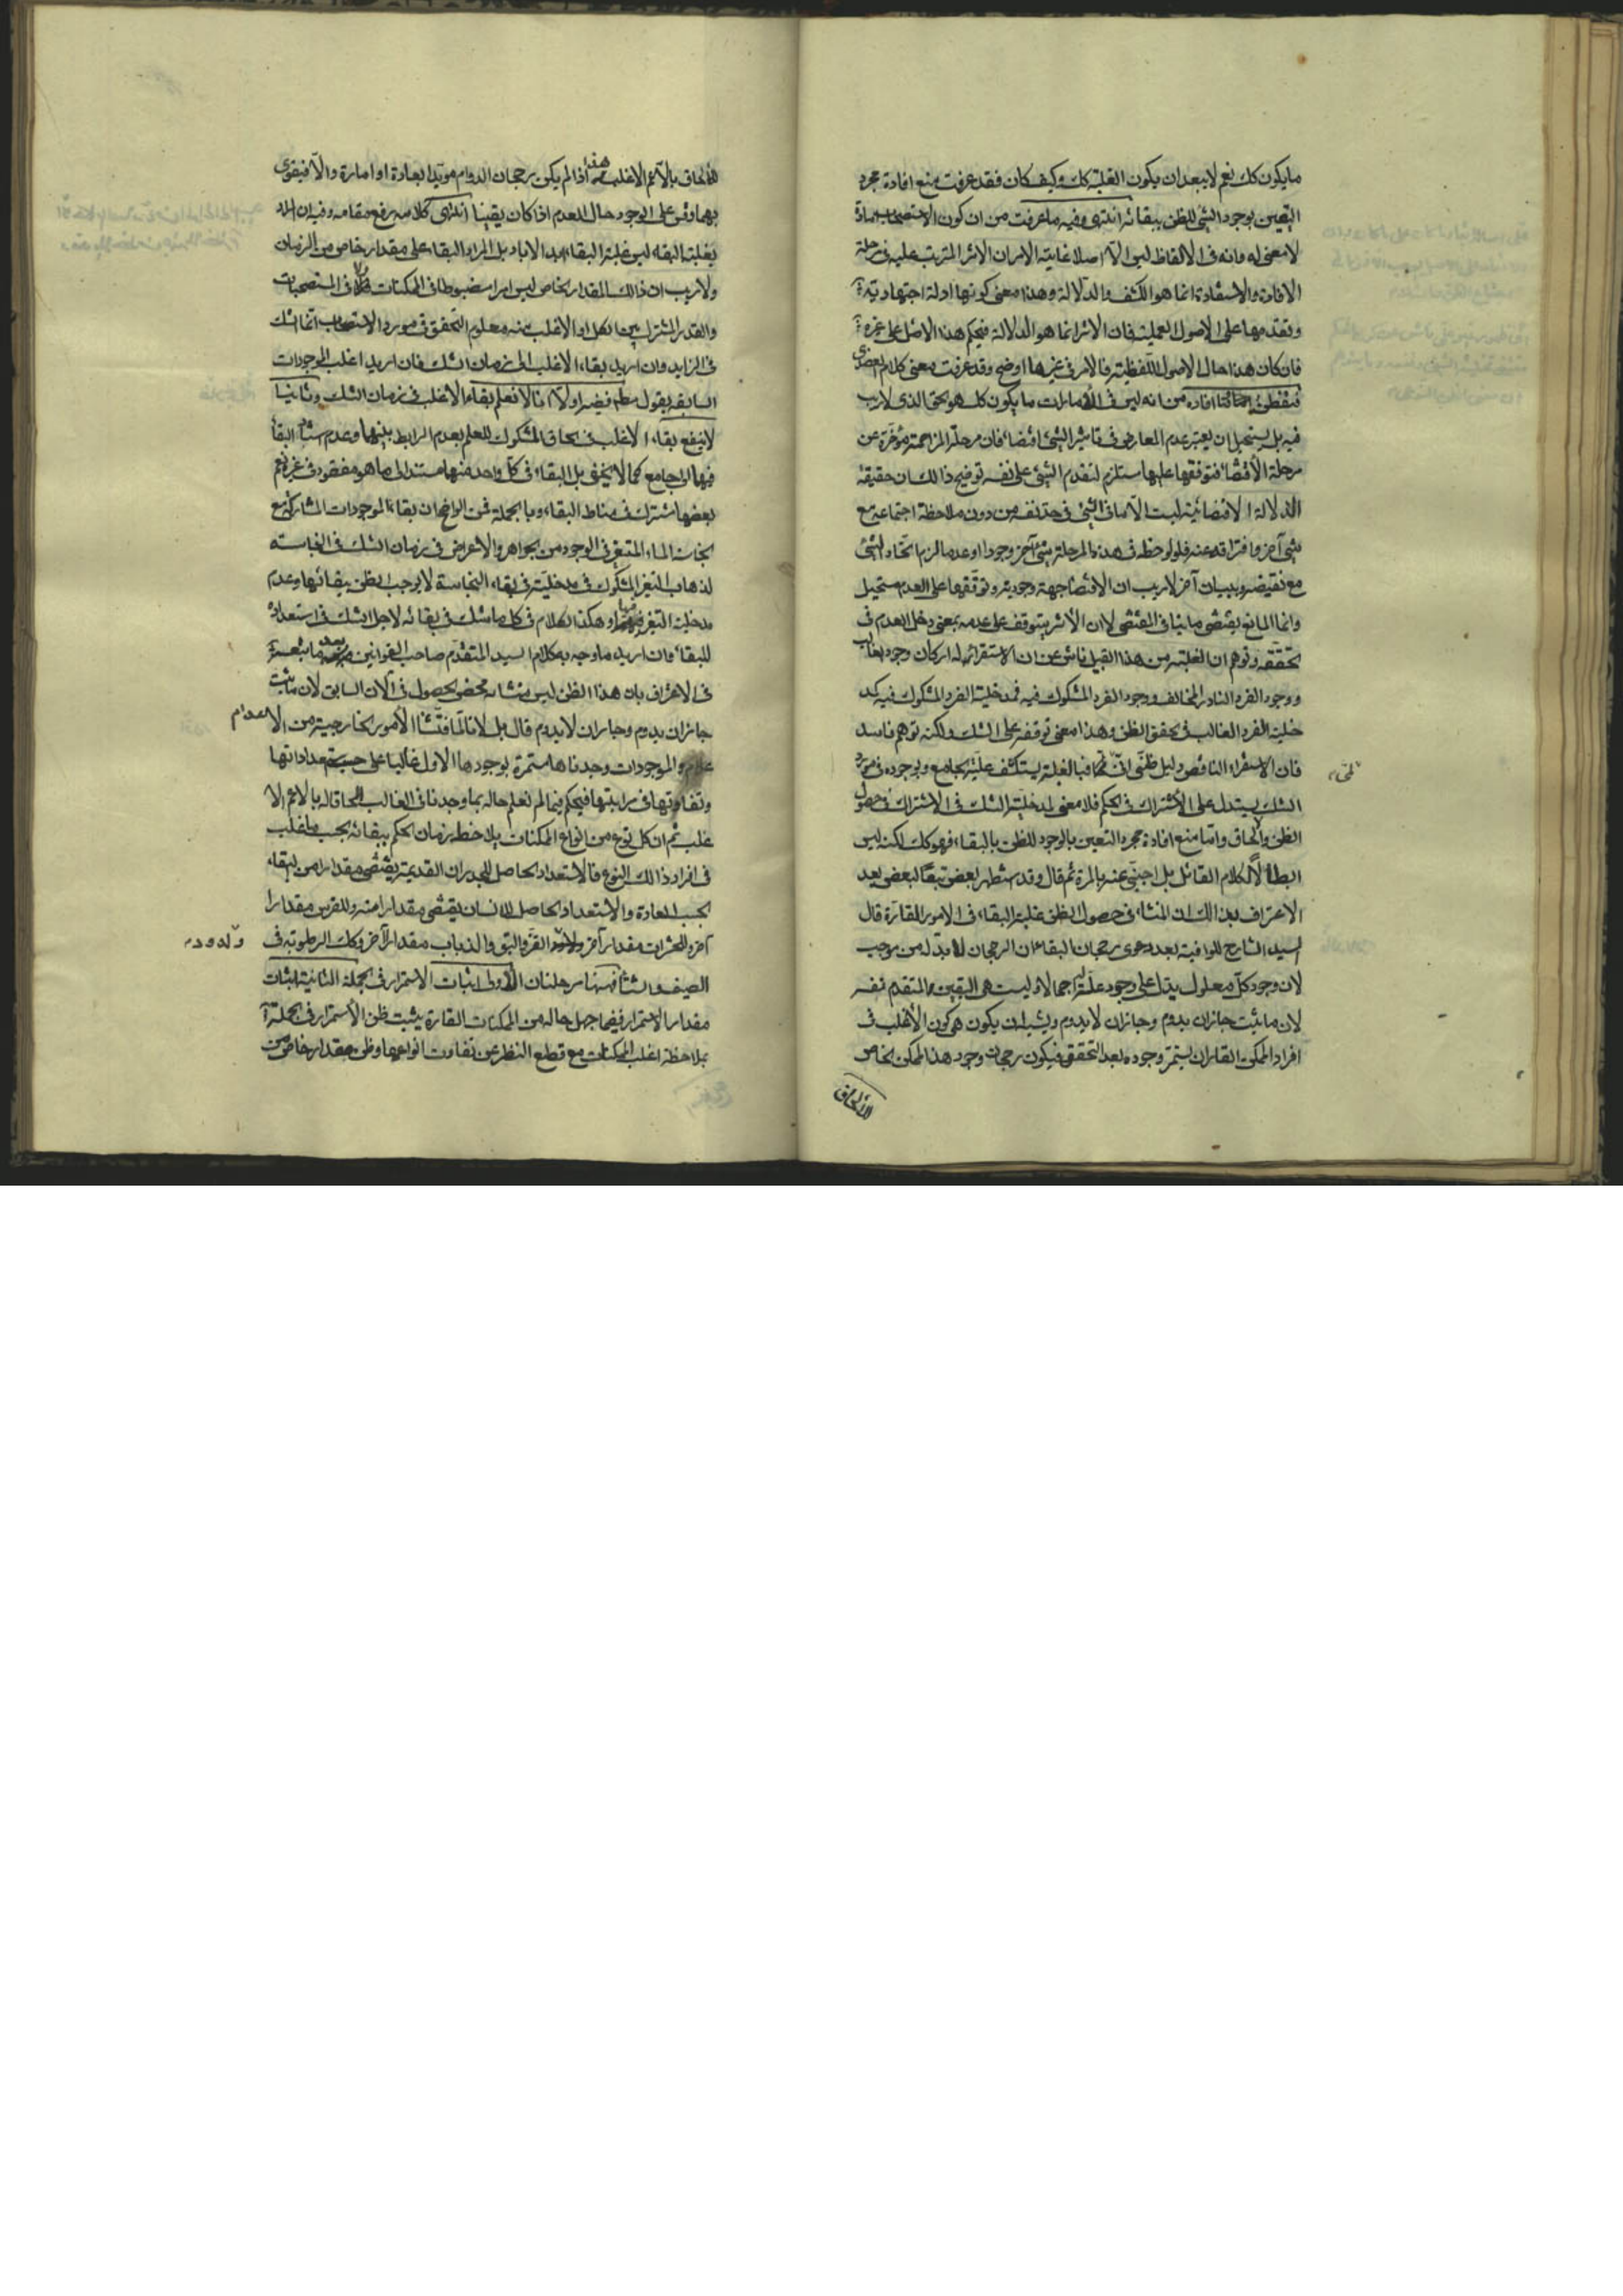 ما يكون كك نعم لا يبعد ان يكون الغلبة كك وكيف كان فقد عرفت منع افادة مجرد
اليقين بوجود الشئ للظن ببقائه انتهى وفيه ما عرفت من ان كون الاستصحاب امارة
لا معنى له وانه في الالفاظ ليس الا اصلا غاية الامر ان الاثر المترتب عليه في مرحلة
الافادة والاستفادة انما هو الكشف والدلالة وهذا معنى كونها ادلة اجتهادية
وتقدمها على الاصول العملية فان الاثر انما هو الدلالة فيحكم هذا الاصل على غيره
فان كان هذا حال الاصول اللفظية فالامر في غيرها اوضح وقد عرفت معنى كلام العضدي
فتفطن افاده من انه ليس في الامارات ما يكون كك هو الحق الذي لا ريب
فيه بل يستحيل ان يعتبر عدم المعارض في تاثير الشئ اقتضاء فان مرحلة المزاحمة مؤخرة عن
مرحلة الاقتضاء فتوقفها عليها مستلزم لتقدم الشئ على نفسه توضيح ذالك ان حقيقة
الدلالة الاقتضائية ليست الا ما في الشئ في حد نفسه من دون ملاحظة اجتماعه مع
شئ آخر وافتراقه عنه فلو لوحظ في هذه المرحلة شئ آخر وجودا او عدما لزم اتحاد الشئ
مع نقيضه وببيان آخر لا ريب ان الاقتضاء جهة وجودية وتوقفها على العدم مستحيل
وانما المانع يقتضى ما ينافي المقتضى لا ان الاثر يتوقف على عدمه بمعنى دخل العدم في
تحققه وتوهم ان الغلبة من هذا القبيل ناش عن ان الاستقراء له اركان وجود الغالب
ووجود الفرد النادر المخالف ووجود الفرد المشكوك فيه فمدخلية الفرد المشكوك فيه كمد
خلية الفرد الغالب في تحقق الظن وهذا معنى توقفه على الشك ولكنه توهم فاسد
فان الاستقراء الناقص دليل ظني انّي فبالغلبة يستكشف علية الجامع وبوجوده في مورد
الشك يستدل على الاشتراك في الحكم فلا معنى لمدخلية الشك في الاشتراك في حصول
الظن والالحاق واما منع افادة مجرد اليقين بالوجود للظن بالبقاء فهو كك لكنه ليس
ابطالا لكلام القائل بل اجنبي عنه بالمرة ثم قال وقد استظهر بعض تبعا لبعض بعد
الاعتراف بذالك ان المنشاء في حصول الظن غلبة البقاء في الامور القارة قال
السيد الشارح للوافية بعد دعوى رجحان البقاء ان الرجحان لا بد له من موجب
لان وجود كل معلول يدل على وجود علة له اجمالا وليست هي اليقين المتقدم نفسه
لان ما ثبت جاز ان يدوم وجاز ان لا يدوم ويشبه ان يكون هي كون الاغلب في
افراد الممكن القار ان يستمر وجوده بعد التحقق فيكون رجحان وجود هذا الممكن الخاص
للالحاق
للالحاق بالاعم الاغلب هذا اذا لم يكن رجحان الدوام مؤيدا بعادة او امارة والا فيقوى
بهما وقس على الوجود حال العدم اذا كان يقينيا انتهى كلامه رفع مقامه وفيه ان المراد
بغلبة البقاء ليس غلبة البقاء ابد الاباد بل المراد البقاء على مقدار خاص من الزمان
ولا ريب ان ذالك المقدار الخاص ليس امرا مضبوطا في الممكنات ولا في المستصحبات
والقدر المشترك بين الكل او الاغلب منه معلوم التحقق في مورد الاستصحاب انما الشك
في الزايد وان اريد بقاء الاغلب الى زمان الشك فان اريد اغلب الموجودات
السابقة بقول مطلق ففيه اولا انا لا نعلم بقاء الاغلب في زمان الشك وثانيا
لا ينفع بقاء الاغلب في الحاق المشكوك للعلم بعدم الرابط بينهما وعدم استناد البقاء
فيها الى جامع كما لا يخفى بل البقاء في كل واحد منها مستند الى ما هو مفقود في غيره نعم
بعضها مشترك في مناط البقاء وبالجملة فمن الواضح ان بقاء الموجودات المشاركة مع
نجاسة الماء المتغير في الوجود من الجواهر والاعراض في زمان الشك في النجاسة
لذهاب التغير المشكوك في مدخليته في بقاء النجاسة لا يوجب الظن ببقائها وعدم
مدخلية التغير فيها وهكذا الكلام في كل ما شك في بقائه لاجل الشك في استعداده
للبقاء وان اريد ما وجه به كلام السيد المتقدم صاحب القوانين بعد ما تبعه
في الاعتراف بان هذا الظن ليس منشاءه محض الحصول في الان السابق لان ما ثبت
جاز ان يدوم وجاز ان لا يدوم قال بل لانا لما فتشنا الامور الخارجية من الاعدام
والموجودات وجدناها مستمرة بوجودها الاول غالبا على حسب استعداداتها
وتفاوتها في مراتبها فيحكم فيما لم نعلم حاله بما وجدنا في الغالب الحاقا له بالاعم الا
غلب ثم ان كل نوع من انواع الممكنات يلاحظ زمان الحكم ببقائه بحسب ما غلب
في افراد ذالك النوع فالاستعداد الحاصل للجدران القديمة يقتضى مقدارا من البقاء
بحسب العادة والاستعداد الحاصل للانسان يقتضى مقدارا منه وللفرس مقدارا
آخر وللحشرات مقدارا آخر ولدود القز والبق والذباب مقدارا آخر وكك الرطوبة في
الصيف والشتاء فهنا مرحلتان الاولى اثبات الاستمرار في الجملة الثانية اثبات
مقدار الاستمرار ففيما جهل حاله من الممكنات القارة يثبت ظن الاستمرار في الجملة
بملاحظة اغلب الممكنات مع قطع النظر عن تفاوت انواعها وظن مقدار خاص من